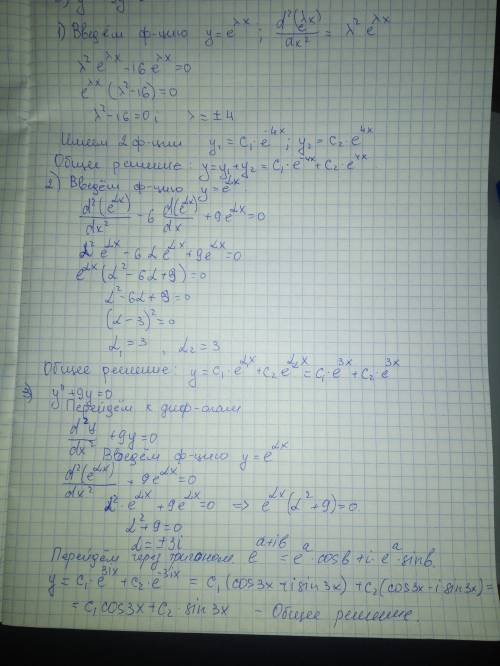 1) Введём ф-цию y = e^{λx} ; d²(e^{λx})/dx² = λ² e^{λx}
λ² e^{λx} - 16 e^{λx} = 0
e^{λx} (λ² - 16) = 0
λ² - 16 = 0, λ = ± 4
Имеем 2 ф-ции y₁ = C₁·e^{-4x} ; y₂ = C₂·e^{4x}
Общее решение: y = y₁ + y₂ = C₁·e^{-4x} + C₂·e^{4x}
2) Введём ф-цию y = e^{αx}
d²(e^{αx})/dx² - 6 d(e^{αx})/dx + 9e^{αx} = 0
α² e^{αx} - 6 α e^{αx} + 9e^{αx} = 0
e^{αx} (α² - 6α + 9) = 0
α² - 6α + 9 = 0
(α - 3)² = 0
α₁ = 3 , α₂ = 3
Общее решение: y = C₁·e^{αx} + C₂ e^{α₂x} = C₁·e^{3x} + C₂·e^{3x}
3) y'' + 9y = 0
Перейдём к диф-алам
d²y/dx² + 9y = 0
Введём ф-цию y = e^{αx}
d²(e^{αx})/dx² + 9e^{αx} = 0
α²·e^{αx} + 9e^{αx} = 0 => e^{αx} (α² + 9) = 0
α² + 9 = 0
α = ±3i
Перейдём через e^{a+ib} = e^a·cosb + i·e^a·sinb
y = C₁·e^{3ix} + C₂·e^{3ix} = C₁(cos3x + i sin3x) + C₂(cos3x - i sin3x) =
= C₁cos3x + C₂·sin3x - Общее решение.